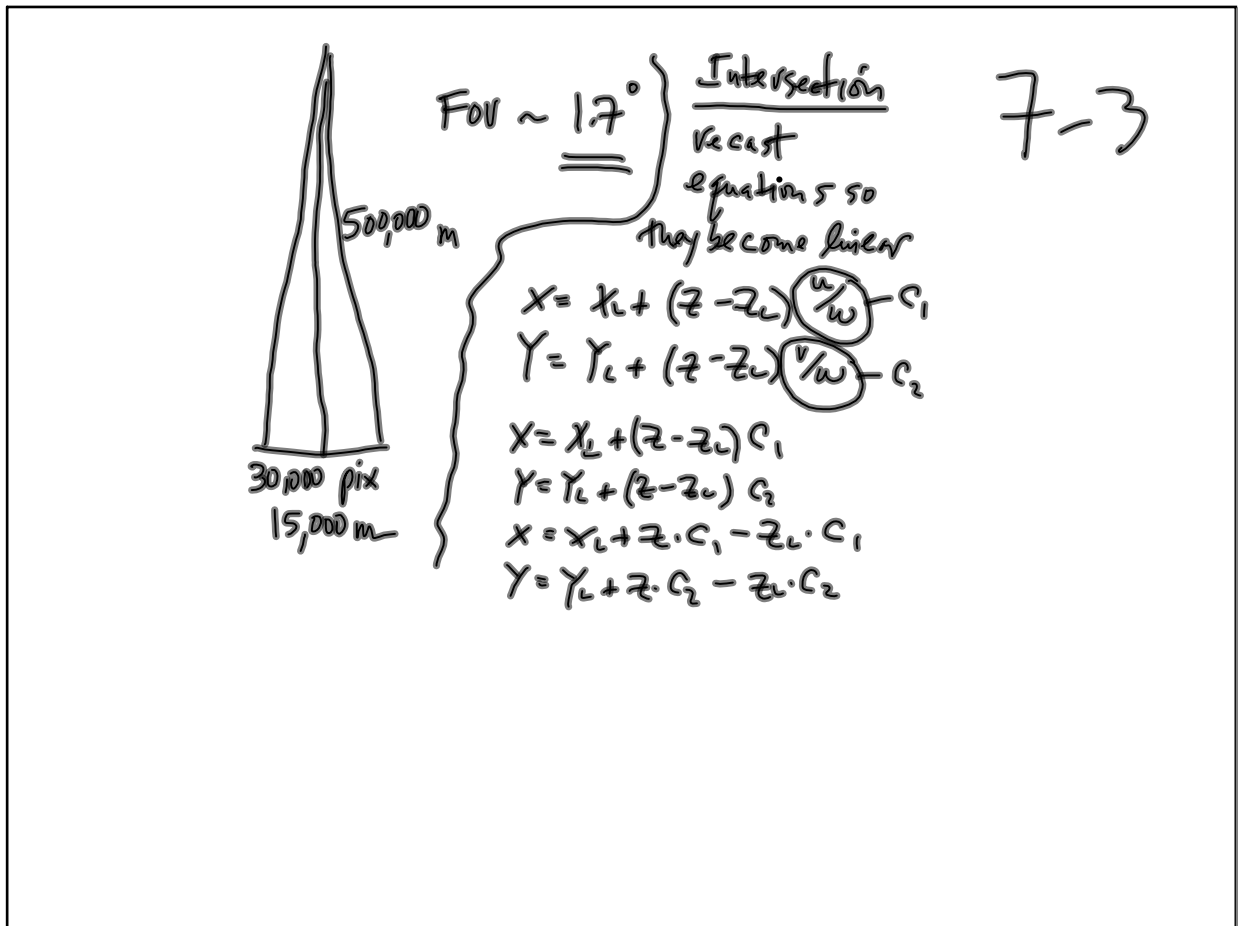 7-3
FOV ~ 1.7°
500,000 m
30,000 pix
15,000 m
Intersection
recast
equations so
they become linear
X = X_L + (Z - Z_L) (u/w) - C_1
Y = Y_L + (Z - Z_L) (v/w) - C_2
X = X_L + (Z - Z_L) C_1
Y = Y_L + (Z - Z_L) C_2
X = X_L + Z · C_1 - Z_L · C_1
Y = Y_L + Z · C_2 - Z_L · C_2